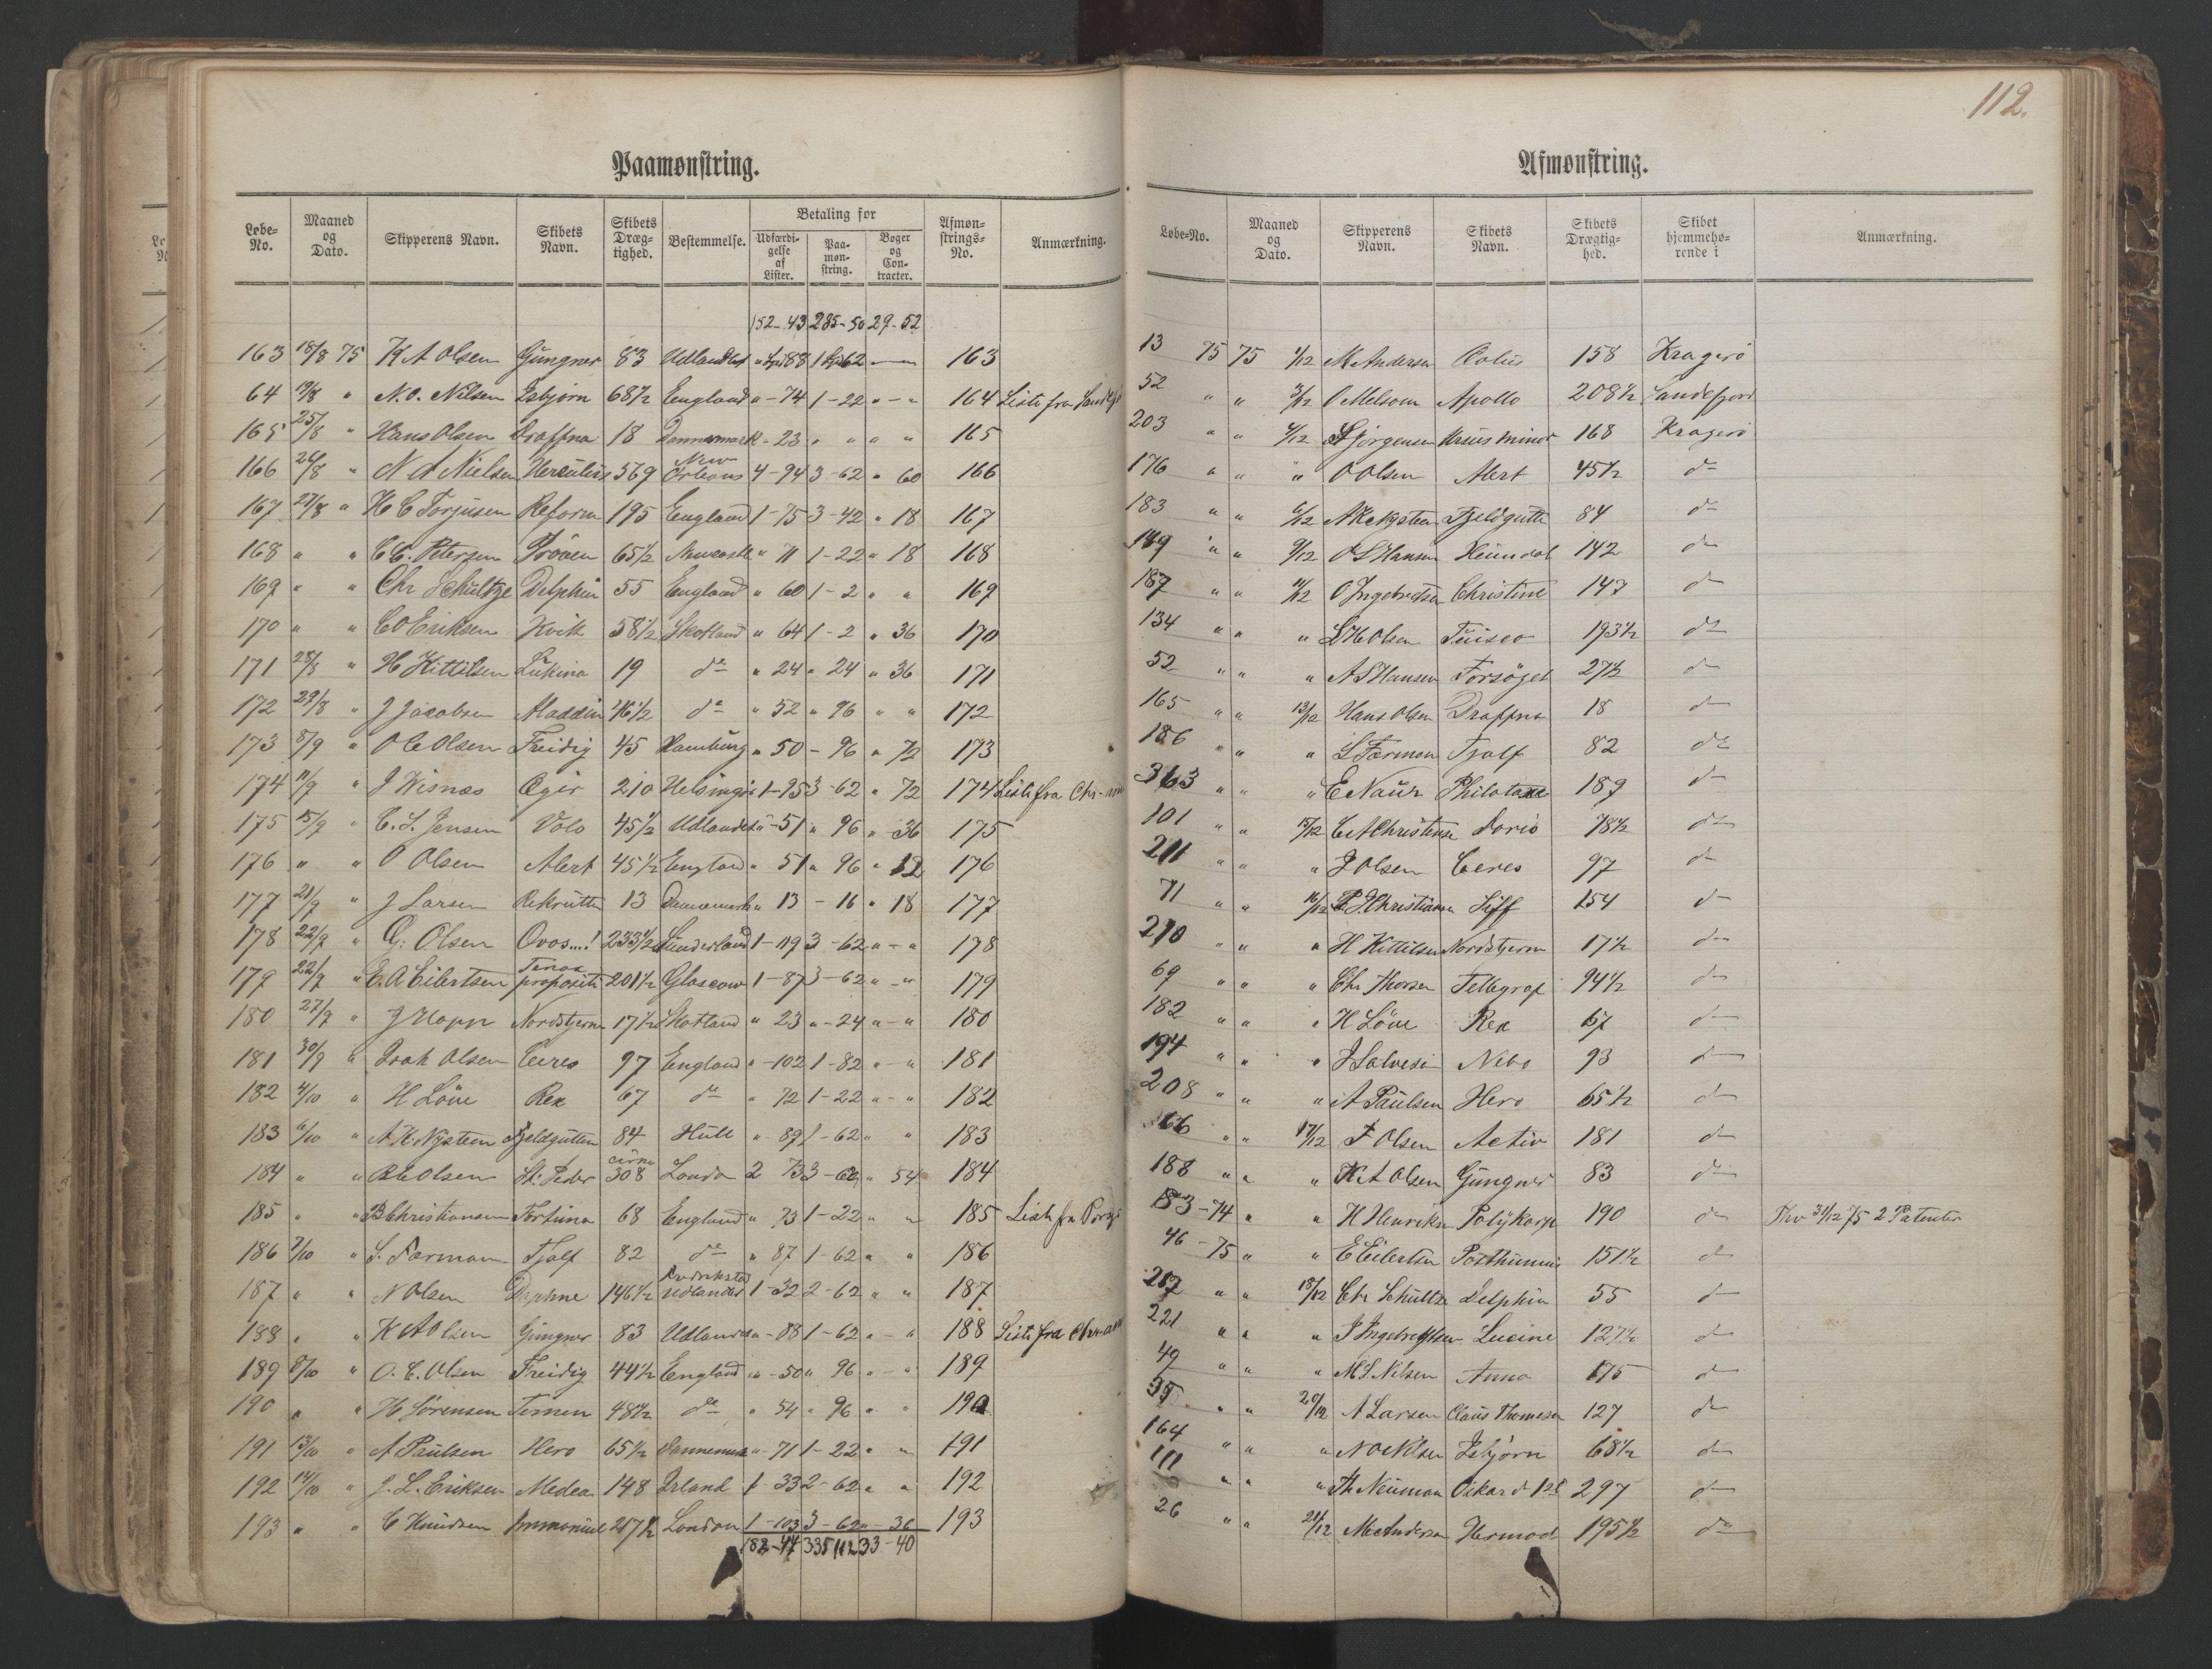 112.
Paamønstring.
Løbe-No. Maaned og Dato. Skipperens Navn. Skibets Navn. Skibets Dræg-tighed. Bestemmelse. Betaling for Udfærdi-gelse af Lister. Paa-møn-string. Bøger og Con-tracter. Afmøn-strings-No. Anmærkning.
152-43 285-50 29-52
163 18/8 75 K A Olsen Gungner 83 Udlandet 88 1 62 163
64 19/8 " N. O. Nilsen Isbjørn 68 1/2 England " - 74 1 - 22 " - " 164 Liste fra
165 25/8 " Hans Olsen Draffna 18 Dannemark " 23 " " " " 165
166 26/8 " N A Nielsen Hercules 569 New Orleans 4 - 94 3 - 62 " 60 166
167 27/8 " H C Torjusen Reform 195 England 1 - 75 3 - 42 " 18 167
168 " " C C. Petersen Prøven 65 1/2 Newcastle " 71 1 - 22 " 18 168
169 " " Chr Schultze Delphin 55 England " 60 1 - 2 " " 169
170 " " C O Eriksen Kvik 58 1/2 Skotland " 64 1 - 2 " 36 170
171 28/8 " H Kittilsen Lukina 19 do " 24 " 24 " 36 171
172 29/8 " J Jacobsen Aladdin 46 1/2 do " 52 " 96 " " 172
173 8/9 " O C Olsen Freidig 45 Hamburg " 50 - 96 " 72 173
174 11/9 " J Wisnæs Ægir 210 Helsingør 1 - 95 3 - 62 " 72 174 Liste fra Chr-
175 15/9 " C. L. Jensen Volo 45 1/2 Udlandet " - 51 " 96 " 36 175
176 " " O Olsen Alert 45 1/2 England " 51 " 96 " 12 176
177 21/9 " J Larsen Rekrutten 13 Dannemark " 13 - 16 " 18 177
178 22/9 " G. Olsen Ovos....! 233 1/2 Sunderland 1 - 119 3 - 62 " - " 178
179 22/9 " E. A Eilertsen Tenax propositi 201 1/2 Glascow 1 - 87 3 - 62 " - " 179
180 27/9 " J Hopn Nordstjern 17 1/2 Skotland " 23 " - 24 " - " 180
181 30/9 " Isak Olsen Ceres 97 England " - 102 1 - 82 " - " 181
182 4/10 " H Löve Rex 67 do " 72 1 - 22 " - " 182
183 6/10 " A. K. Nysteen Fjeldgutten 84 Hull " - 89 1 - 62 " " 183
184 " " Olsen St. Peder cirka 308 London 2 73 3 - 62 " 54 184
185 " " B Christiansen Fortuna 68 England " 73 1 - 22 " " 185 Liste fra
186 7/10 " S. Færman Tjalf 82 do " 87 1 - 62 " " 186
187 " " N Olsen Daphne 146 1/2 Fredrikstad udlandet 1 - 32 2 - 62 " " 187
188 " " K A Olsen Gungner 83 Udlandet " - 88 1 - 62 " - " 188 Liste fra
189 8/10 " O. C. Olsen Freidig 44 1/2 England " - 50 " 96 " - " 189
190 " " H Sörensen Ternen 48 1/2 do " 54 " 96 " " 190
191 13/10 " A Paulsen Hero 65 1/2 Dannemark " - 71 1 - 22 " " 191
192 14/10 " J. L. Eriksen Medea 148 Irland 1 - 33 2 - 62 " " 192
193 " " C Knudsen Immanuel 217 1/2 London 1 - 103 3 - 62 " - 36 193
182-47 335 112 33-40
Afmønstring.
Løbe-No. Maaned og Dato. Skipperens Navn. Skibets Navn. Skibets Drægtig-hed. Skibet hjemmehø-rende i Anmærkning.
13 75 75 1/12 M Andersen Æolus 158 Kragerö
52 " " 3/12 O Melsom Apollo 208 1/2 Sandefjord
203 " " 4/12 Jörgensen Ursus minor 168 Kragerö
176 " " " O Olsen Alert 45 1/2 do
183 " " 6/12 A K Nysteen Fjeldgutten 84 do
189 " " 9/12 O S Hansen Heimdal 142 do
187 " " 11/12 O Ingebretsen Christine 147 do
134 " " " L H Olsen Tuisco 193 1/2 do
52 " " " A S Hansen Forsöget 27 1/2 do
165 " " 13/12 Hans Olsen Draffna 18 do
186 " " " S Færman Tjalf 82 do
363 " " " E Naur 189 do
101 " " 15/12 C A Christensen Doris 78 1/2 do
211 " " " I Olsen Ceres 97 do
71 " " 16/12 P. J. Christiansen Siff 154 do
210 " " " H Kittilsen Nordstjern 17 1/2 do
69 " " " Chr Thorsen Tellegraf 94 1/2 do
182 " " " H Löve Rex 67 do
194 " " " J Salvesen Nebo 93 do
208 " " " A Paulsen Hero 65 1/2 do
66 " " 17/12 F Olsen Activ 181 do
188 " " " K A Olsen Gungner 83 do
153-74 " " H Henriksen Polykarp 190 do 31/12 75 2 Patenter
46-75 " " E Eilertsen Posthumus 151 1/2 do
217 " " 18/12 Chr Schultze Delphin 55 do
221 " " " J Ingebrigtsen Lucine 127 1/2 do
49 " " " M S. Nilsen Anna 175 do
35 " " 20/12 A Larsen Claus Thomesen 127 do
164 " " " N O Nilsen Isbjørn 68 1/2 do
111 " " " Th Neuman Oskar d 1ste 297 do
26 " " 21/12 M Andersen Hermod 195 1/2 do